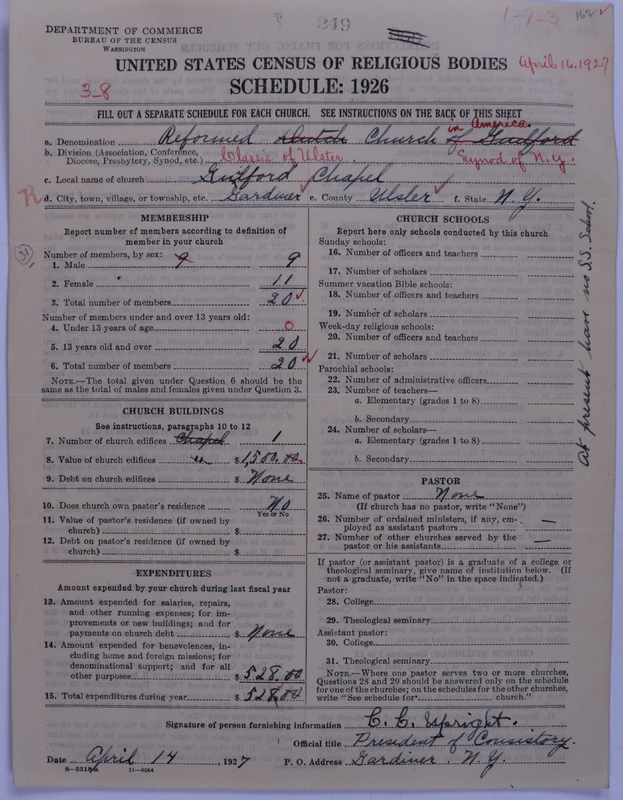 249
1-9-3
162
DEPARTMENT OF COMMERCE
BUREAU OF THE CENSUS
WASHINGTON
UNITED STATES CENSUS OF RELIGIOUS BODIES
April 16, 1927
3-8
SCHEDULE: 1926
FILL OUT A SEPARATE SCHEDULE FOR EACH CHURCH. SEE INSTRUCTIONS ON THE BACK OF THIS SHEET
in America
a. Denomination Reformed Dutch Church of Guilford
b. Division (Association, Conference, Diocese, Presbytery, Synod, etc.) Classis of Ulster. Synod of N.Y.
c. Local name of church Guilford Chapel
R
d. City, town, village, or township, etc. Gardiner e. County Ulster f. State N.Y.
MEMBERSHIP
Report number of members according to definition of
member in your church
31
Number of members, by sex: 9
1. Male 9
2. Female 11
3. Total number of members 20
Number of members under and over 13 years old:
4. Under 13 years of age 0
5. 13 years old and over 20
6. Total number of members 20
NOTE.—The total given under Question 6 should be the
same as the total of males and females given under Question 3.
CHURCH BUILDINGS
See instructions, paragraphs 10 to 12
7. Number of church edifices Chapel 1
8. Value of church edifices " $1,500.00
9. Debt on church edifices $ None
10. Does church own pastor's residence No
Yes or No
11. Value of pastor's residence (if owned by
church) $
12. Debt on pastor's residence (if owned by
church) $
EXPENDITURES
Amount expended by your church during last fiscal year
13. Amount expended for salaries, repairs,
and other running expenses; for im-
provements or new buildings; and for
payments on church debt $ None
14. Amount expended for benevolences, in-
cluding home and foreign missions; for
denominational support; and for all
other purposes $ 528.00
15. Total expenditures during year $ 528.00
CHURCH SCHOOLS
Report here only schools conducted by this church
Sunday schools:
16. Number of officers and teachers
17. Number of scholars
Summer vacation Bible schools:
18. Number of officers and teachers
19. Number of scholars
Week-day religious schools:
20. Number of officers and teachers
21. Number of scholars
Parochial schools:
22. Number of administrative officers
23. Number of teachers—
a. Elementary (grades 1 to 8)
b. Secondary
24. Number of scholars—
a. Elementary (grades 1 to 8)
b. Secondary
At present have no S.S. School.
PASTOR
25. Name of pastor None
(If church has no pastor, write "None")
26. Number of ordained ministers, if any, em-
ployed as assistant pastors —
27. Number of other churches served by the
pastor or his assistants —
If pastor (or assistant pastor) is a graduate of a college or
theological seminary, give name of institution below. (If
not a graduate, write "No" in the space indicated.)
Pastor:
28. College
29. Theological seminary
Assistant pastor:
30. College
31. Theological seminary
NOTE.—Where one pastor serves two or more churches,
Questions 28 and 29 should be answered only on the schedule
for one of the churches; on the schedules for the other churches,
write "See schedule for church."
Signature of person furnishing information C. C. Upright.
Official title President of Consistory.
Date April 14, 1927 P. O. Address Gardiner N.Y.
8-5518a 11-9264